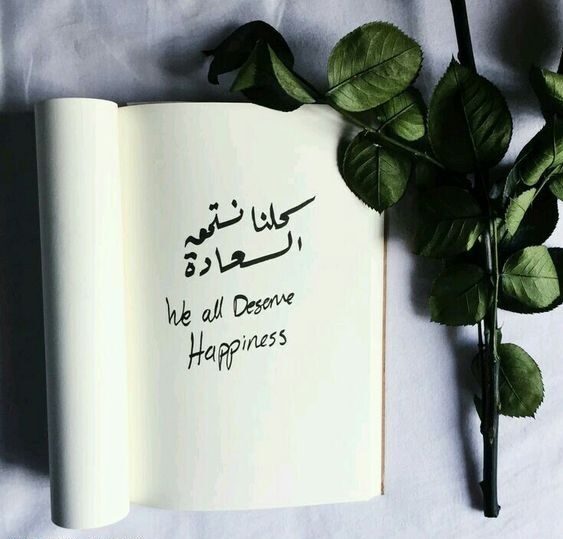 كلنا نستحق
السعادة
We all Deserve
Happiness